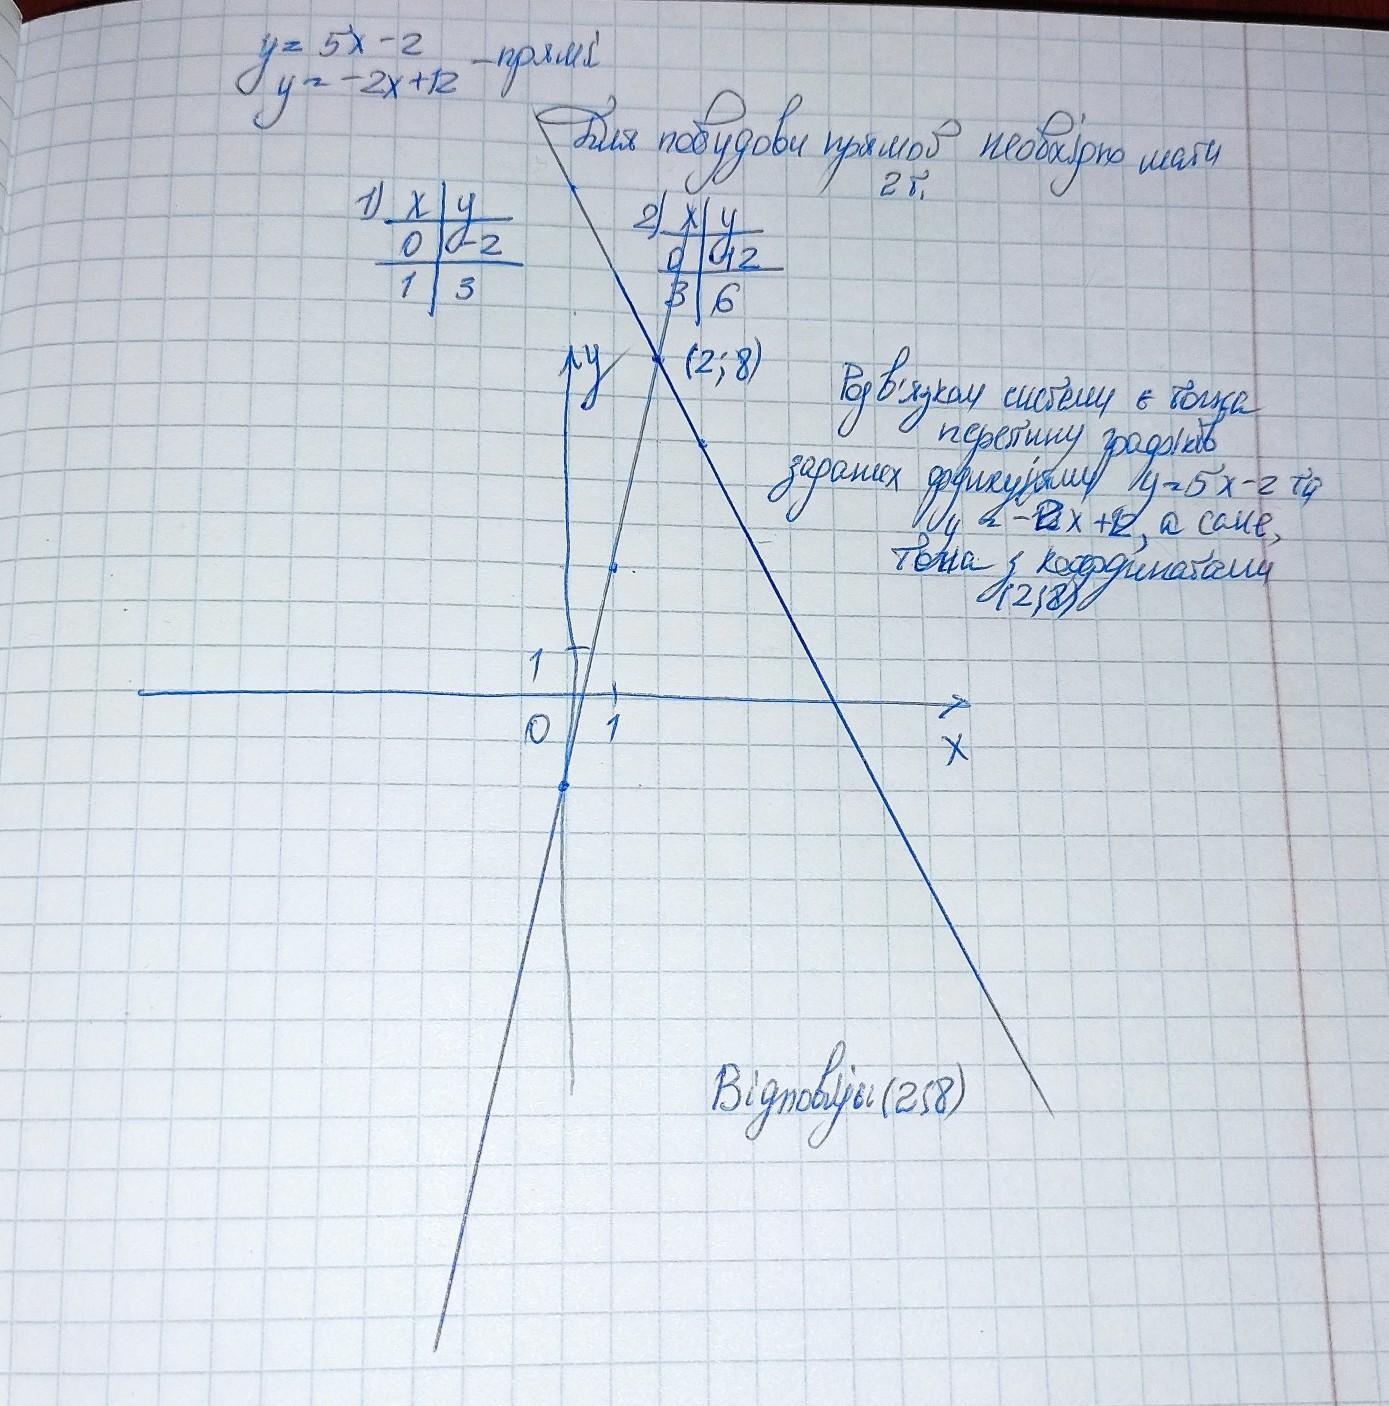 y = 5x - 2
y = -2x + 12 - прямі
Для побудови прямої необхідно мати
2 т.
1) x | y
0 | -2
1 | 3
2) x | y
0 | 12
3 | 6
y
(2; 8)
Розв'язком системи є точка
перетину графіків
заданих функціями y = 5x - 2 та
y = -2x + 12, а саме,
точка з координатами
(2;8)
1
0 1
x
Відповідь (2;8)